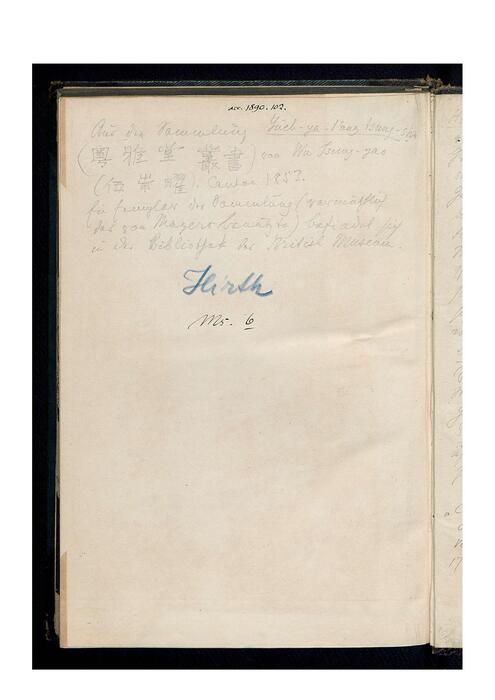 acc. 1890.102.
Aus der Sammlung Yüeh-ya-t'ang tsung-shu
(粵雅堂 叢書) von Wu Tsung-yao
(伍崇曜). Canton 1853.
Ein Exemplar der Sammlung (vermuthlich
das von Mayers benützte) befindet sich
in der Bibliothek des British Museum.
Hirth
Ms. 6